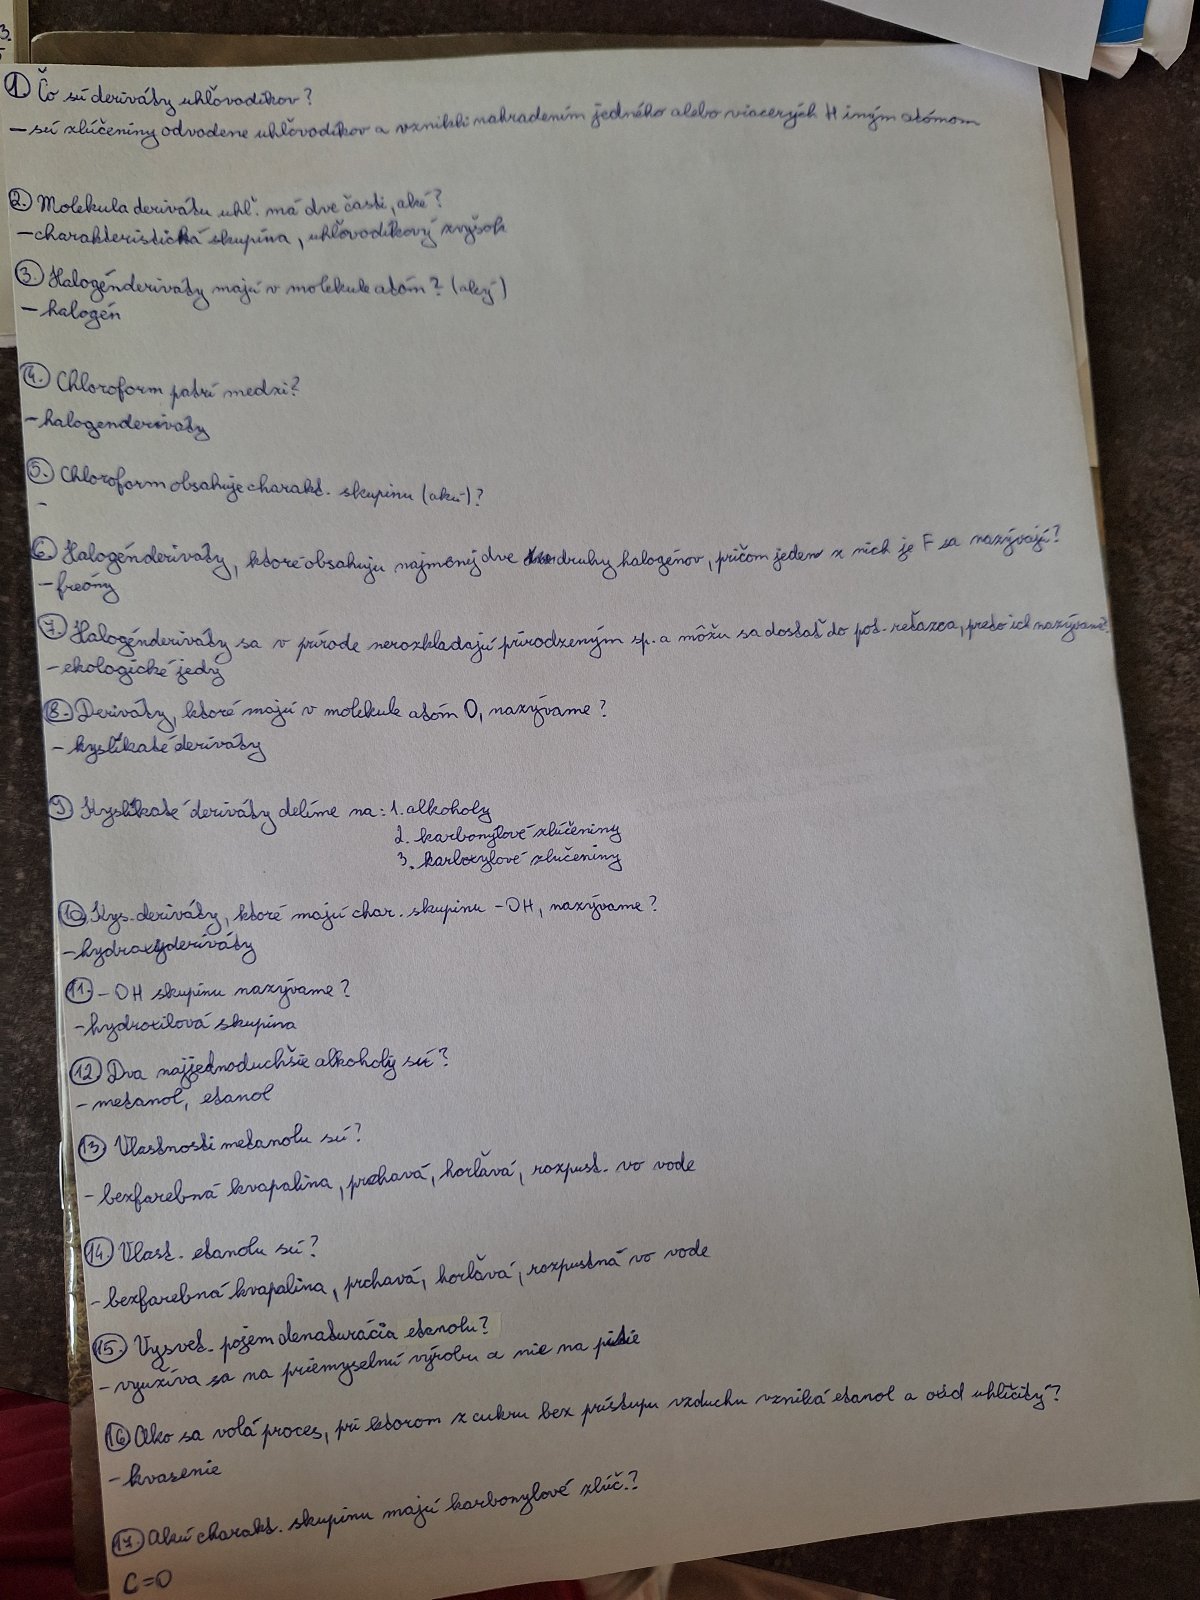 3.
1. Čo sú deriváty uhľovodíkov?
– sú zlúčeniny odvodene uhľovodíkov a vznikli nahradením jedného alebo viacerých H iným atómom
2. Molekula derivátu uhľ. má dve časti, aké?
– charakteristická skupina, uhľovodíkový zvyšok
3. Halogénderiváty majú v molekule atóm? (aký)
– halogén
4. Chloroform patrí medzi?
– halogenderiváty
5. Chloroform obsahuje charakt. skupinu (akú)?
–
6. Halogénderiváty, ktoré obsahuju najmenej dve druhy halogénov, pričom jeden z nich je F sa nazývajú?
– freóny
7. Halogénderiváty sa v prírode nerozkladajú prirodzeným sp. a môžu sa dostať do pot. reťazca, preto ich nazývame?
– ekologické jedy
8. Deriváty, ktoré majú v molekule atóm O, nazývame?
– kyslíkaté deriváty
9. Kyslíkaté deriváty delíme na: 1. alkoholy
2. karbonylové zlúčeniny
3. karboxylové zlučeniny
10. Kys. deriváty, ktoré majú char. skupinu -OH, nazývame?
– hydroxyderiváty
11. – OH skupinu nazývame?
– hydroxilová skupina
12. Dva najjednoduchšie alkoholy sú?
– metanol, etanol
13. Vlastnosti metanolu sú?
– bezfarebná kvapalina, prchavá, horľavá, rozpust. vo vode
14. Vlast. etanolu sú?
– bezfarebná kvapalina, prchavá, horľavá, rozpustná vo vode
15. Vysvet. pojem denaturácia etanolu?
– využíva sa na priemyselnú výrobu a nie na pitie
16. Ako sa volá proces, pri ktorom z cukru bez prístupu vzduchu vzniká etanol a oxid uhličitý?
– kvasenie
17. Akú charakt. skupinu majú karbonylové zlúč.?
C=O